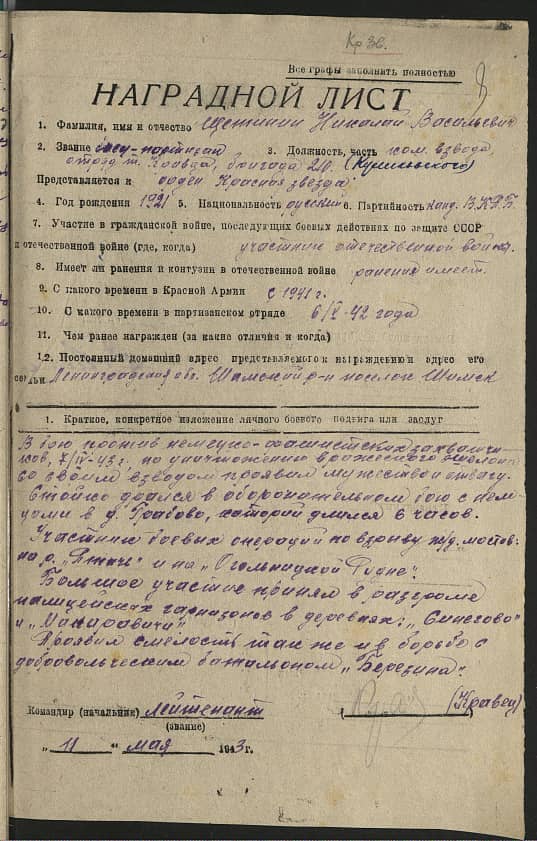 Кр Зв.
Все графы заполнить полностью
НАГРАДНОЙ ЛИСТ
1. Фамилия, имя и отчество Щетинин Николай Васильевич
2. Звание боец-партизан 3. Должность, часть ком. взвода
отряд т. Кравца, бригада 210 (Кулинского)
Представляется к орден Красная звезда
4. Год рождения 1921 5. Национальность русский 6. Партийность канд. ВКПБ
7. Участие в гражданской войне, последующих боевых действиях по защите СССР
и отечественной войне (где, когда) участник отечественной войны.
8. Имеет ли ранения и контузии в отечественной войне ранения имеет.
9. С какого времени в Красной Армии с 1941 г.
10. С какого времени в партизанском отряде 6/V-42 года
11. Чем ранее награжден (за какие отличия и когда)
12. Постоянный домашний адрес представляемого к награждению и адрес его
семьи Ленинградская обл. Шимский р-н поселок Шимск
1. Краткое, конкретное изложение личного боевого подвига или заслуг
В бою против немецко-фашистских захватчи-
ков, 7/IV-43 г. по уничтожению вражеского эшелона
со своим взводом проявил мужество и отвагу.
Стойко дрался в оборонительном бою с нем-
цами в д. Грабово, который длился 6 часов.
Участник боевых операций по взрыву ж/д. мостов:
на р. „Птичь" и на „Рудне".
Большое участие принял в разгроме
полицейских гарнизонов в деревнях: „Синегово"
и „Макаровичи"
Проявил смелость так же и в борьбе с
добровольческим батальоном „Березина".
Командир (начальник) Лейтенант (Кравец)
(звание)
„ 11 " мая 1943 г.